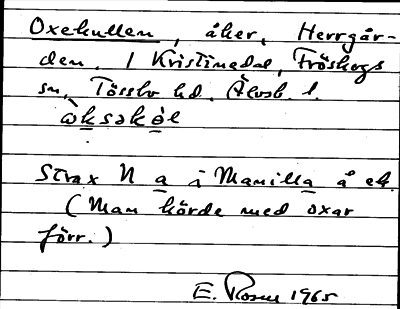 Oxekullen, åker, Herrgår-
den. 1 Kristinedal, Fröskogs
sn, Tössbo hd. Älvsb. l.
Strax N a i Manilla å ek.
(Man körde med oxar
förr.)
E. Rosen 1965